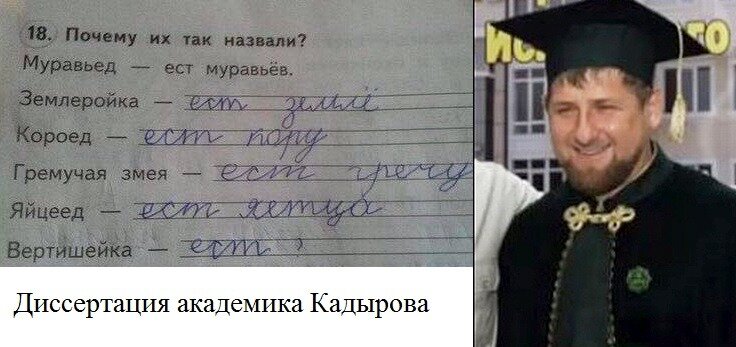 18. Почему их так назвали?
Муравьед — ест муравьёв.
Землеройка — ест землё
Короед — ест кору
Гремучая змея — ест гречу
Яйцеед — ест яетца
Вертишейка — ест ,
Диссертация академика Кадырова